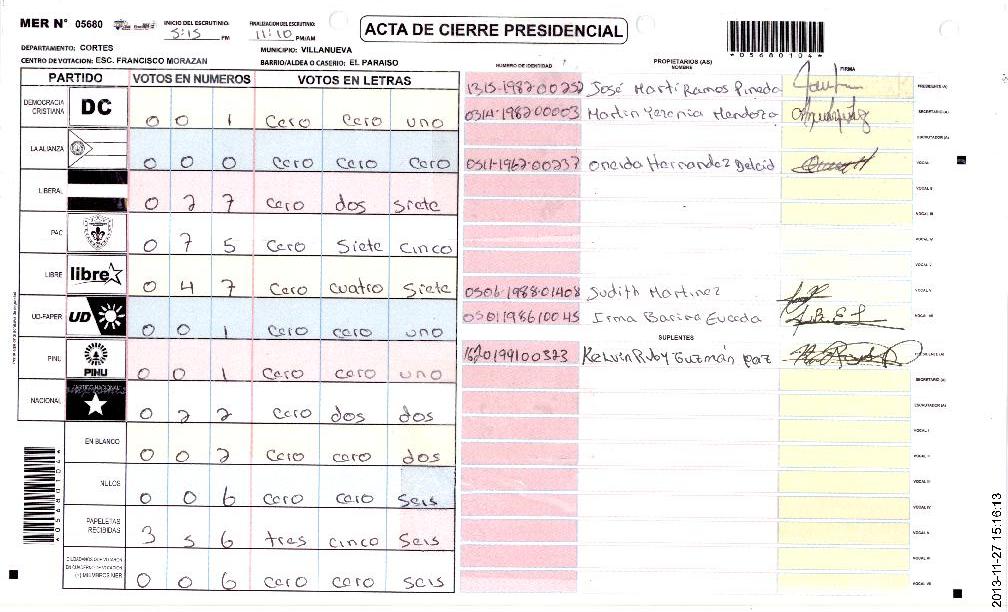 MER N° 05680
INICIO DEL ESCRUTINIO: 5:15 PM
FINALIZACION DEL ESCRUTINIO: 11:10 PM/AM
ACTA DE CIERRE PRESIDENCIAL
*05680104*
DEPARTAMENTO: CORTES
MUNICIPIO: VILLANUEVA
CENTRO DE VOTACION: ESC. FRANCISCO MORAZAN
BARRIO/ALDEA O CASERIO: EL PARAISO
PARTIDO VOTOS EN NUMEROS VOTOS EN LETRAS
DEMOCRACIA CRISTIANA DC 0 0 1 Cero Cero uno
LA ALIANZA 0 0 0 Cero Cero Cero
LIBERAL 0 2 7 Cero dos siete
PAC 0 7 5 Cero Siete cinco
LIBRE libre 0 4 7 Cero cuatro Siete
UD-FAPER UD 0 0 1 Cero cero uno
PINU PINU 0 0 1 Cero cero uno
NACIONAL PARTIDO NACIONAL 0 2 2 cero dos dos
EN BLANCO 0 0 2 Cero cero dos
NULOS 0 0 6 Cero cero seis
PAPELETAS RECIBIDAS 3 5 6 tres cinco seis
CIUDADANOS QUE VOTARON EN CUADERNO DE VOTACION (+) MIEMBROS MER 0 0 6 Cero cero seis
*05680104*
NUMERO DE IDENTIDAD
PROPIETARIOS (AS)
NOMBRE
FIRMA
1315-1982-00252 José Martí Ramos Pineda PRESIDENTE (A)
0314-198200003 Martin Yesenia Mendoza SECRETARIO (A)
ESCRUTADOR (A)
0511-1962-00237 Oneida Hernandez Delcid VOCAL I
VOCAL II
VOCAL III
VOCAL IV
VOCAL V
0506-1988-01408 Judith Martinez
0501198610045 Irma
SUPLENTES
1620199100323 Kelvin Ruby Guzmán paz PRESIDENTE (A)
SECRETARIO (A)
ESCRUTADOR (A)
VOCAL I
VOCAL II
VOCAL III
VOCAL IV
VOCAL V
VOCAL VI
VOCAL VII
2013-11-27 15:16:13